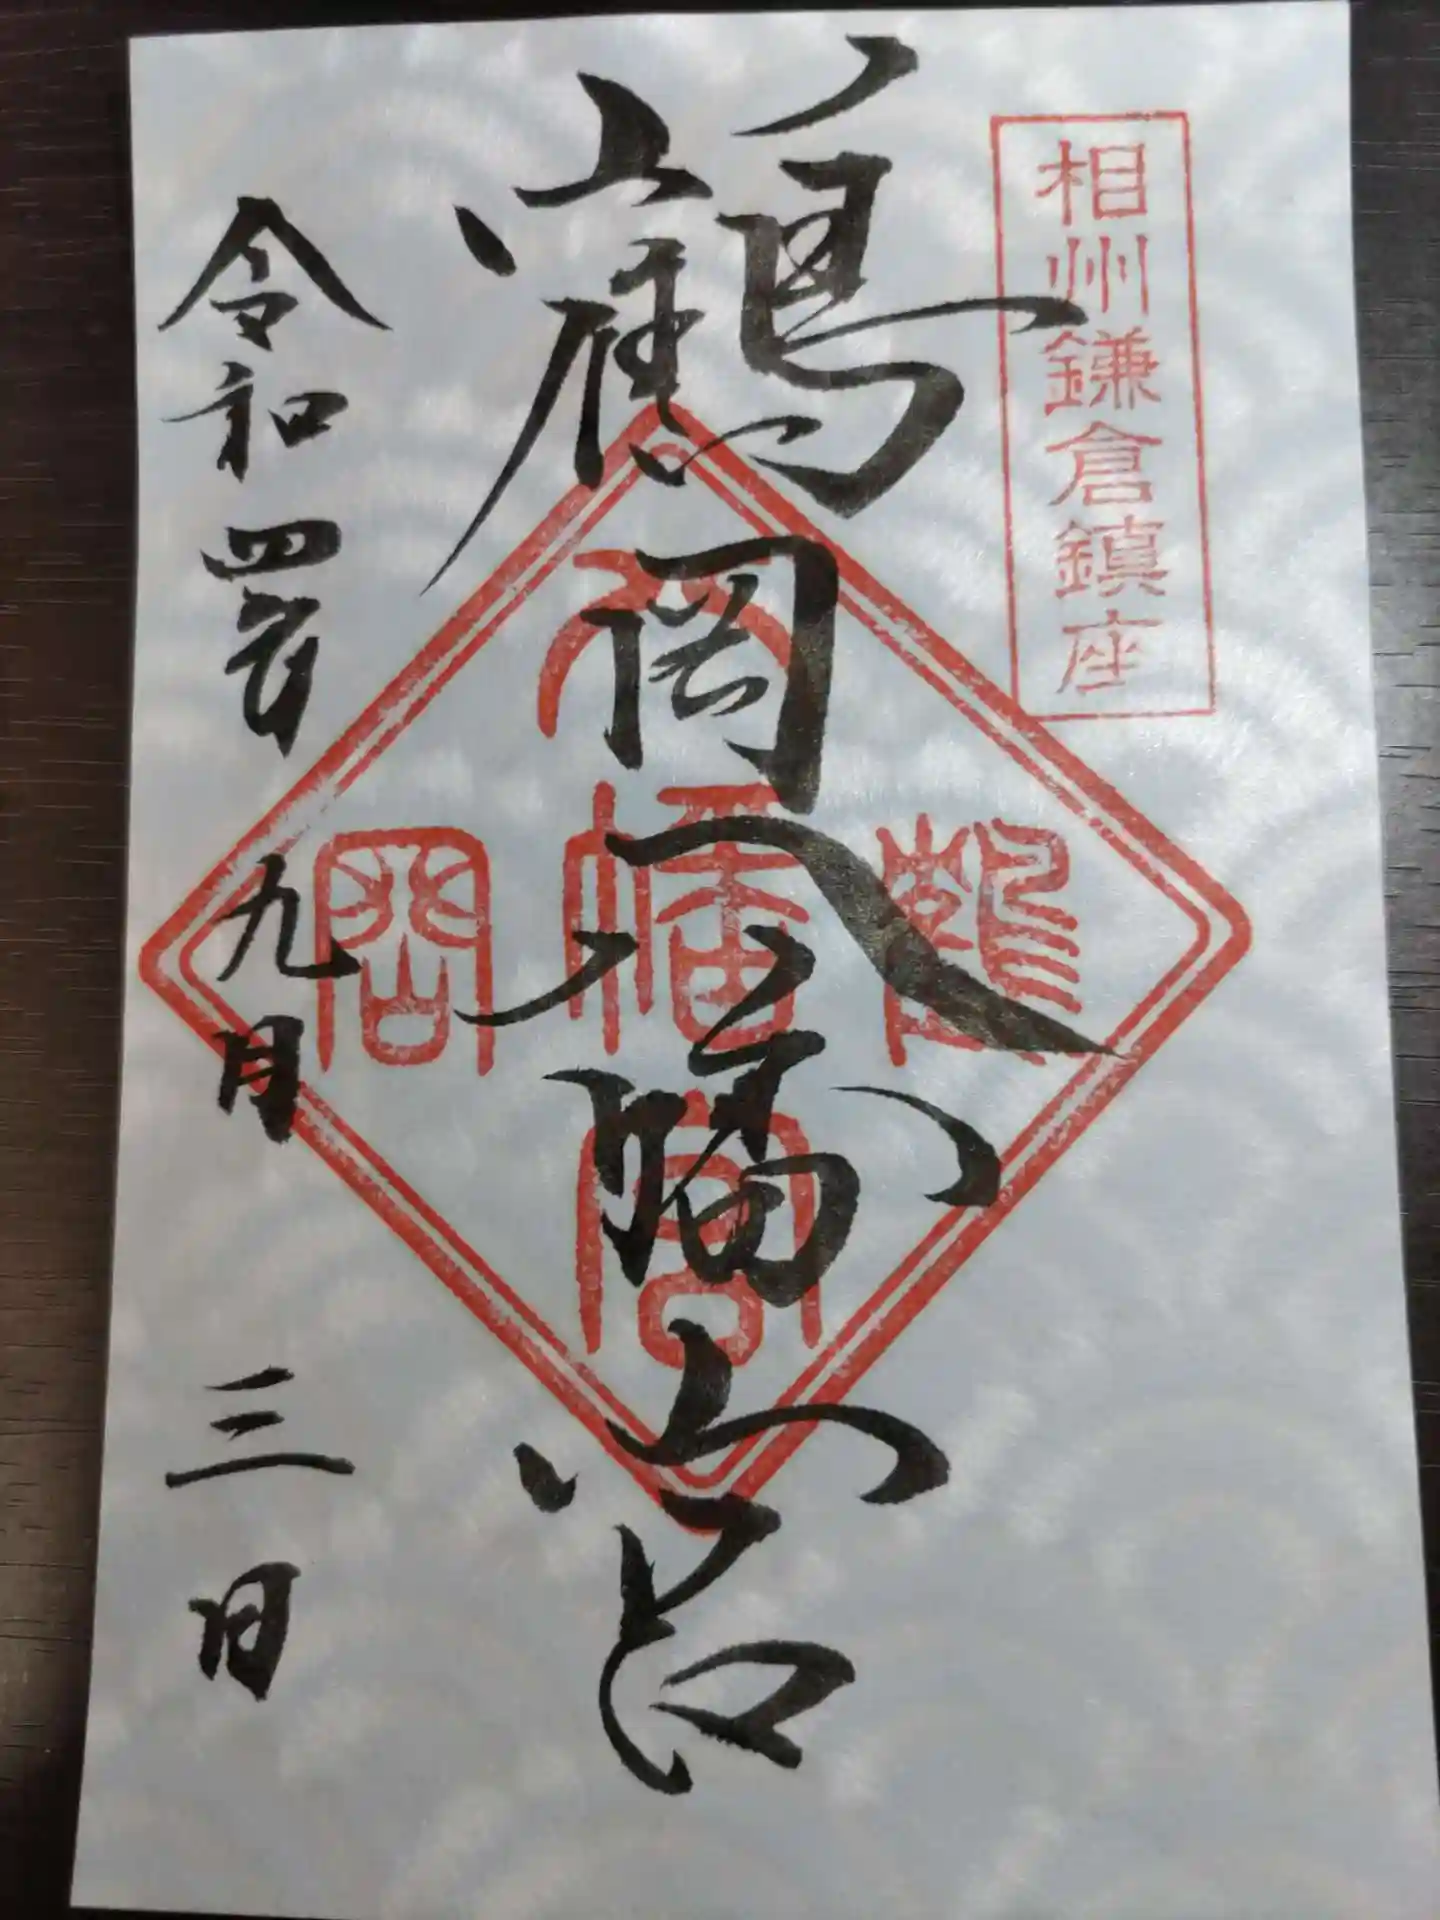 相州鎌倉鎮座
鶴岡八幡宮
八
鶴 幡 岡
宮
令和四年九月三日